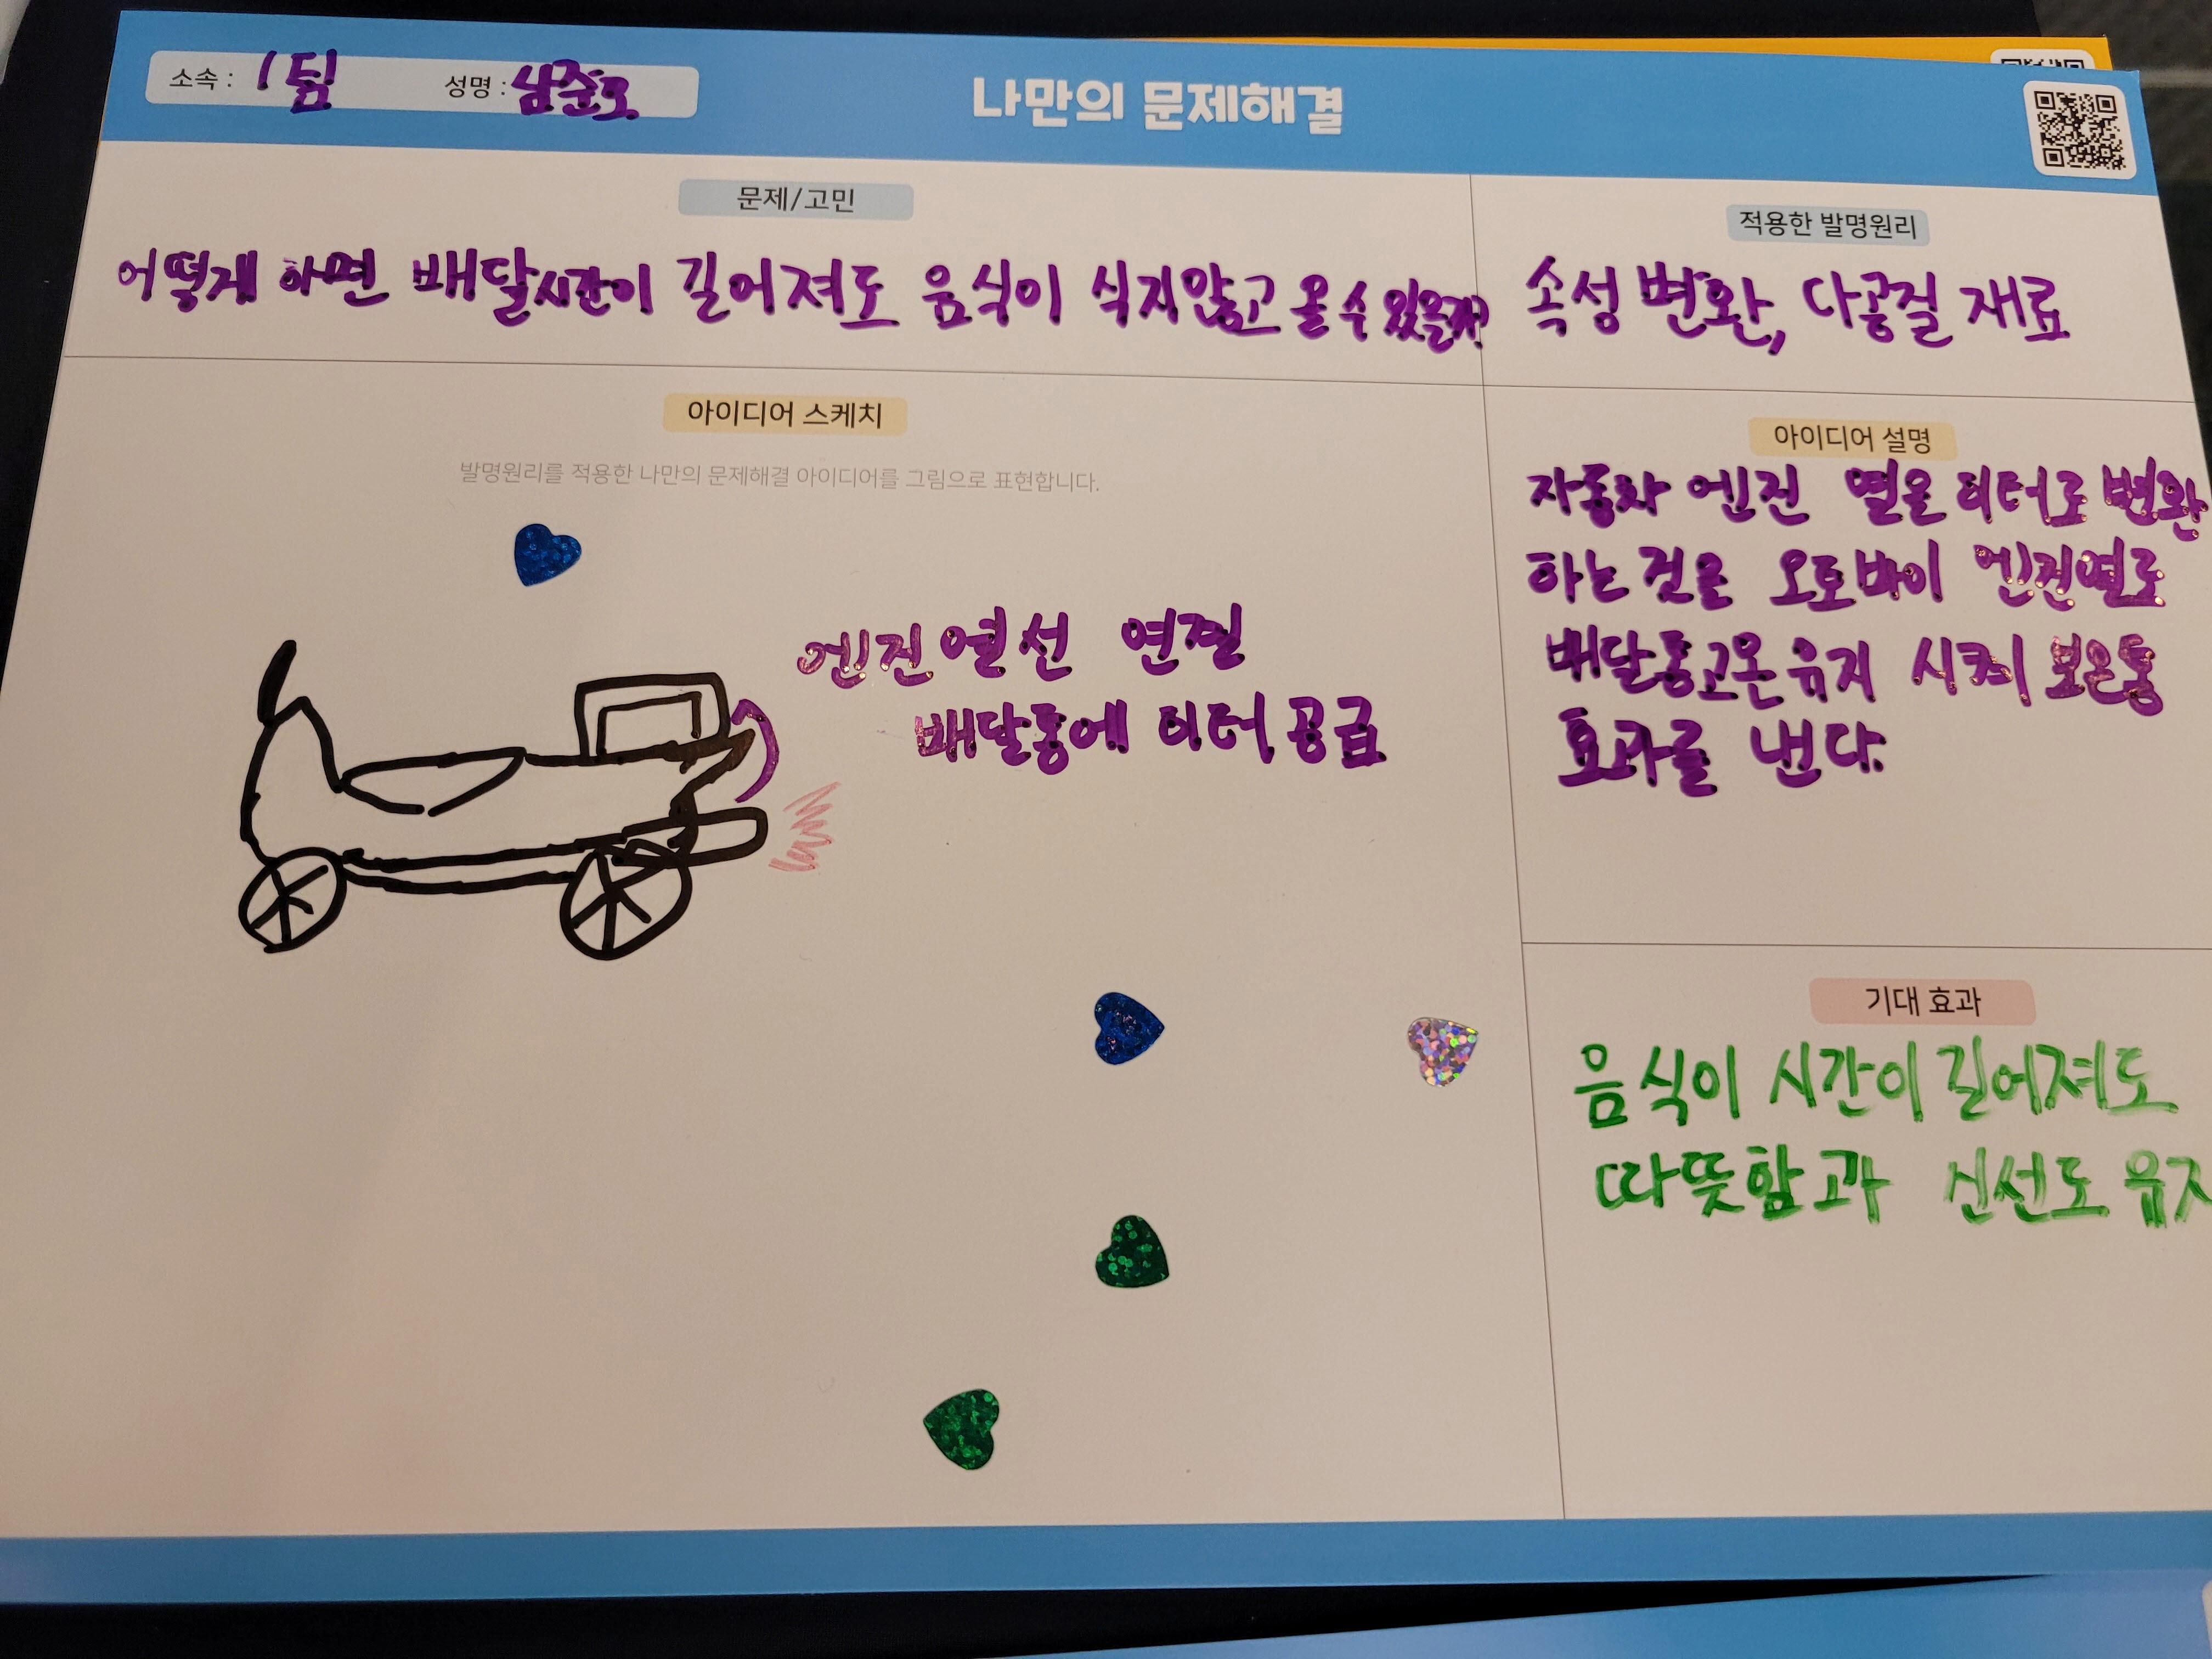 소속 : 1팀 성명 : 남준모
나만의 문제해결
문제/고민
어떻게 하면 배달시간이 길어져도 음식이 식지않고 올 수 있을까?
적용한 발명원리
속성 변환, 다공질 재료
아이디어 스케치
발명원리를 적용한 나만의 문제해결 아이디어를 그림으로 표현합니다.
엔진 열선 연결
배달통에 히터 공급
아이디어 설명
자동차 엔진 열을 히터로 변환
하는 것을 오토바이 엔진열로
배달통고온유지 시켜 보온통
효과를 낸다.
기대 효과
음식이 시간이 길어져도
따뜻함과 신선도 유지